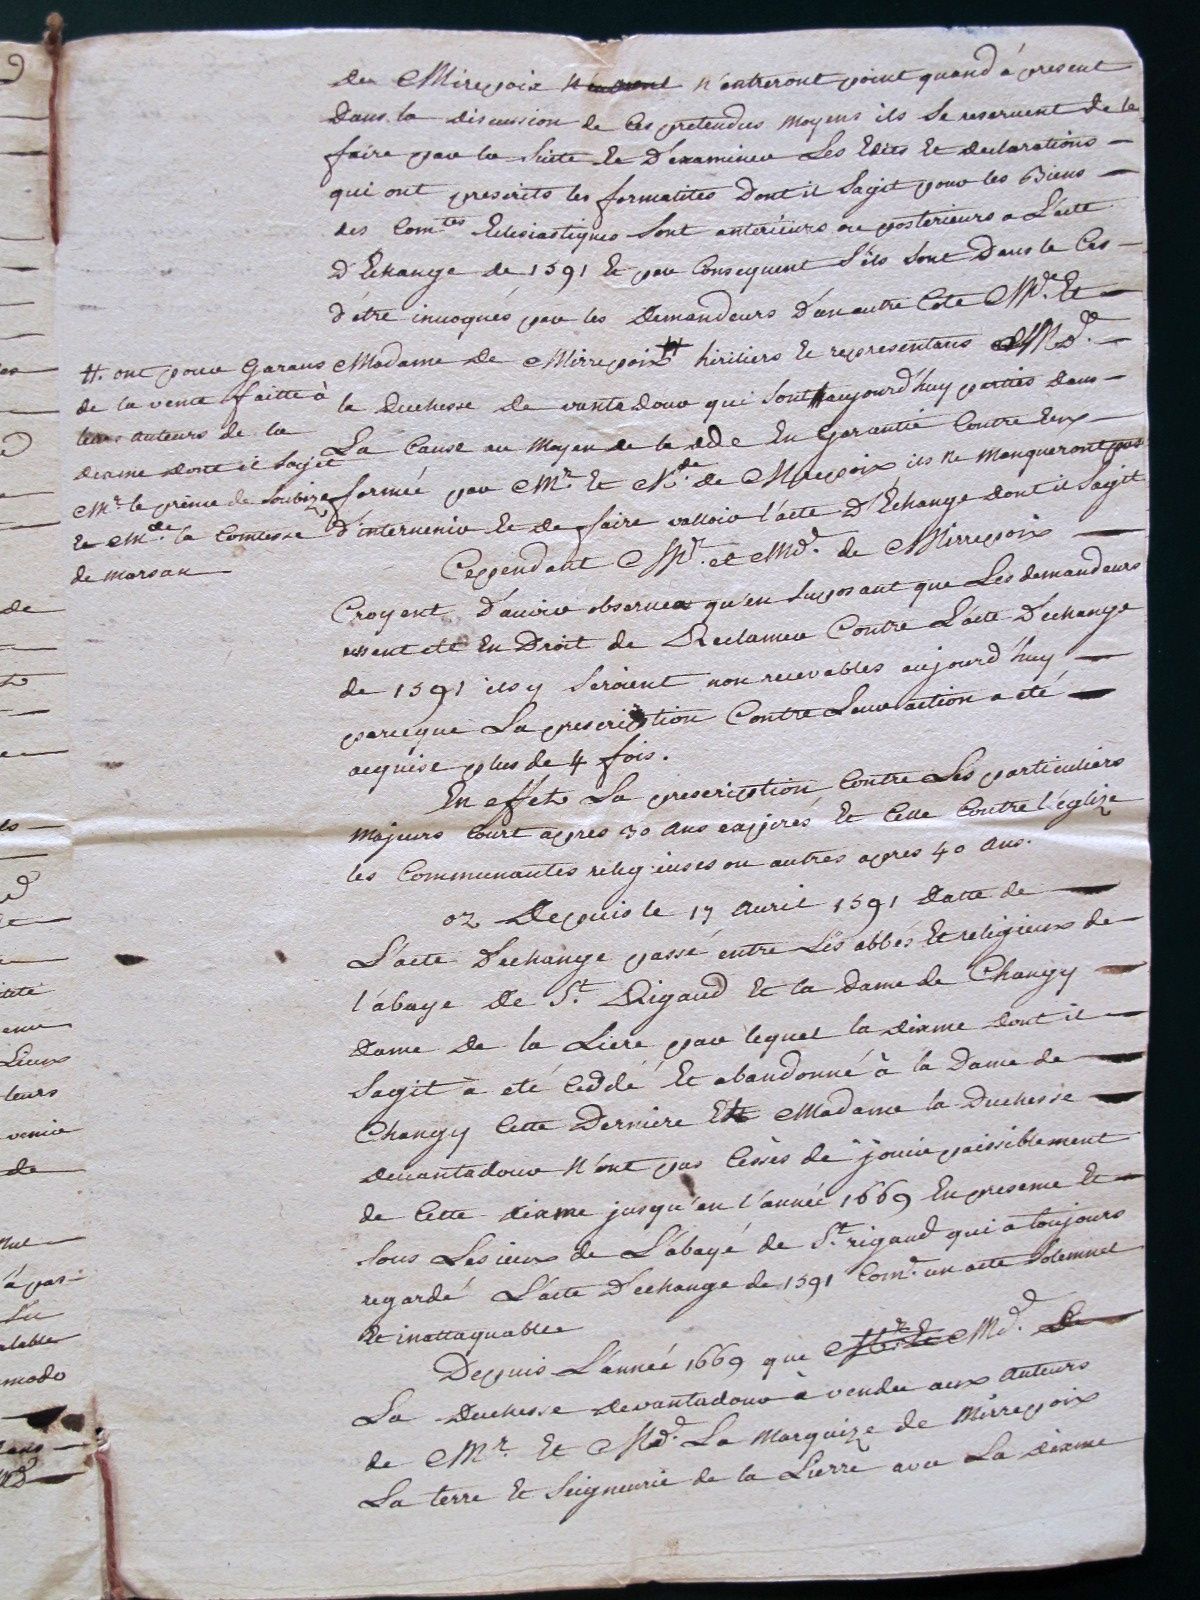 de Mirepoix n'entreront point quand à present
Dans la discussion de ces pretendus moyens ils se reservent de le
faire par la suite Et D'examiner Les Edits Et declarations
qui ont prescrits les formalités Dont il Sagit pour les Biens
des Com.tes Eclesiastiques sont anterieurs ou posterieurs a L'acte
D'Echange de 1591 Et par Consequent S'ils sont Dans le Cas
d'être invoqués par les Demandeurs D'un autre Coté Mr. Et
Madame de Mirrepoix # hiritiers Et representans Md.
la Duchesse de vantadour qui sont aujourd'huy parties dans
La Cause au moyen de la dde En Garantie Contre Eux
formée par Mr. Et Mde. de Mirepoix, ils ne manqueront pas
D'intervenir Et de faire valloir l'acte D'Echange dont il Sagit
#. ont pour Garans
de la vente faitte à
leurs auteurs de la
dixme dont il sagit
Mr. le prince de Soubize
Et Mde. la Comtesse
de marsan
Cependant Mr. et Md. de Mirrepoix
Croyent D'avoir observer qu'en suposant que Les demandeurs
ussent eté En Droit de Reclamer Contre L'acte D'echange
de 1591 ils y seroient non recevables aujourd'huy
parceque La prescription Contre Leur action a eté
acquise plus de 4 fois.
En effet La prescription Contre Les particuliers
majeurs Court apres 30 ans expirés Et Celle Contre l'eglize
les Communautés religieuses ou autres apres 40 ans.
or Depuis le 17 avril 1591 Datte de
L'acte D'echange passé entre Les abbés Et religieux de
l'abaye de St. Rigaud Et la Dame de Changy
Dame de la Liere par lequel la dixme dont il
Sagit à eté Ceddé Et abandonné à la Dame de
Changy Cette Derniere Et Madame la Duchesse
devantadour n'ont pas Cessés de jouir paissiblement
de Cette dixme jusqu'en l'année 1669 En presence Et
sous Les ieux de L'abayé de St. rigaud qui a toujours
regardé L'acte D'echange de 1591 Com.e un acte Solemnel
Et inattaquable
Depuis L'année 1669 que Mr. Et Md. De
La Duchesse devantadour à vendu aux auteurs
de Mr. Et Md. La Marquize de Mirrepoix
La terre Et Seigneurie de la Lierre avec La dixme